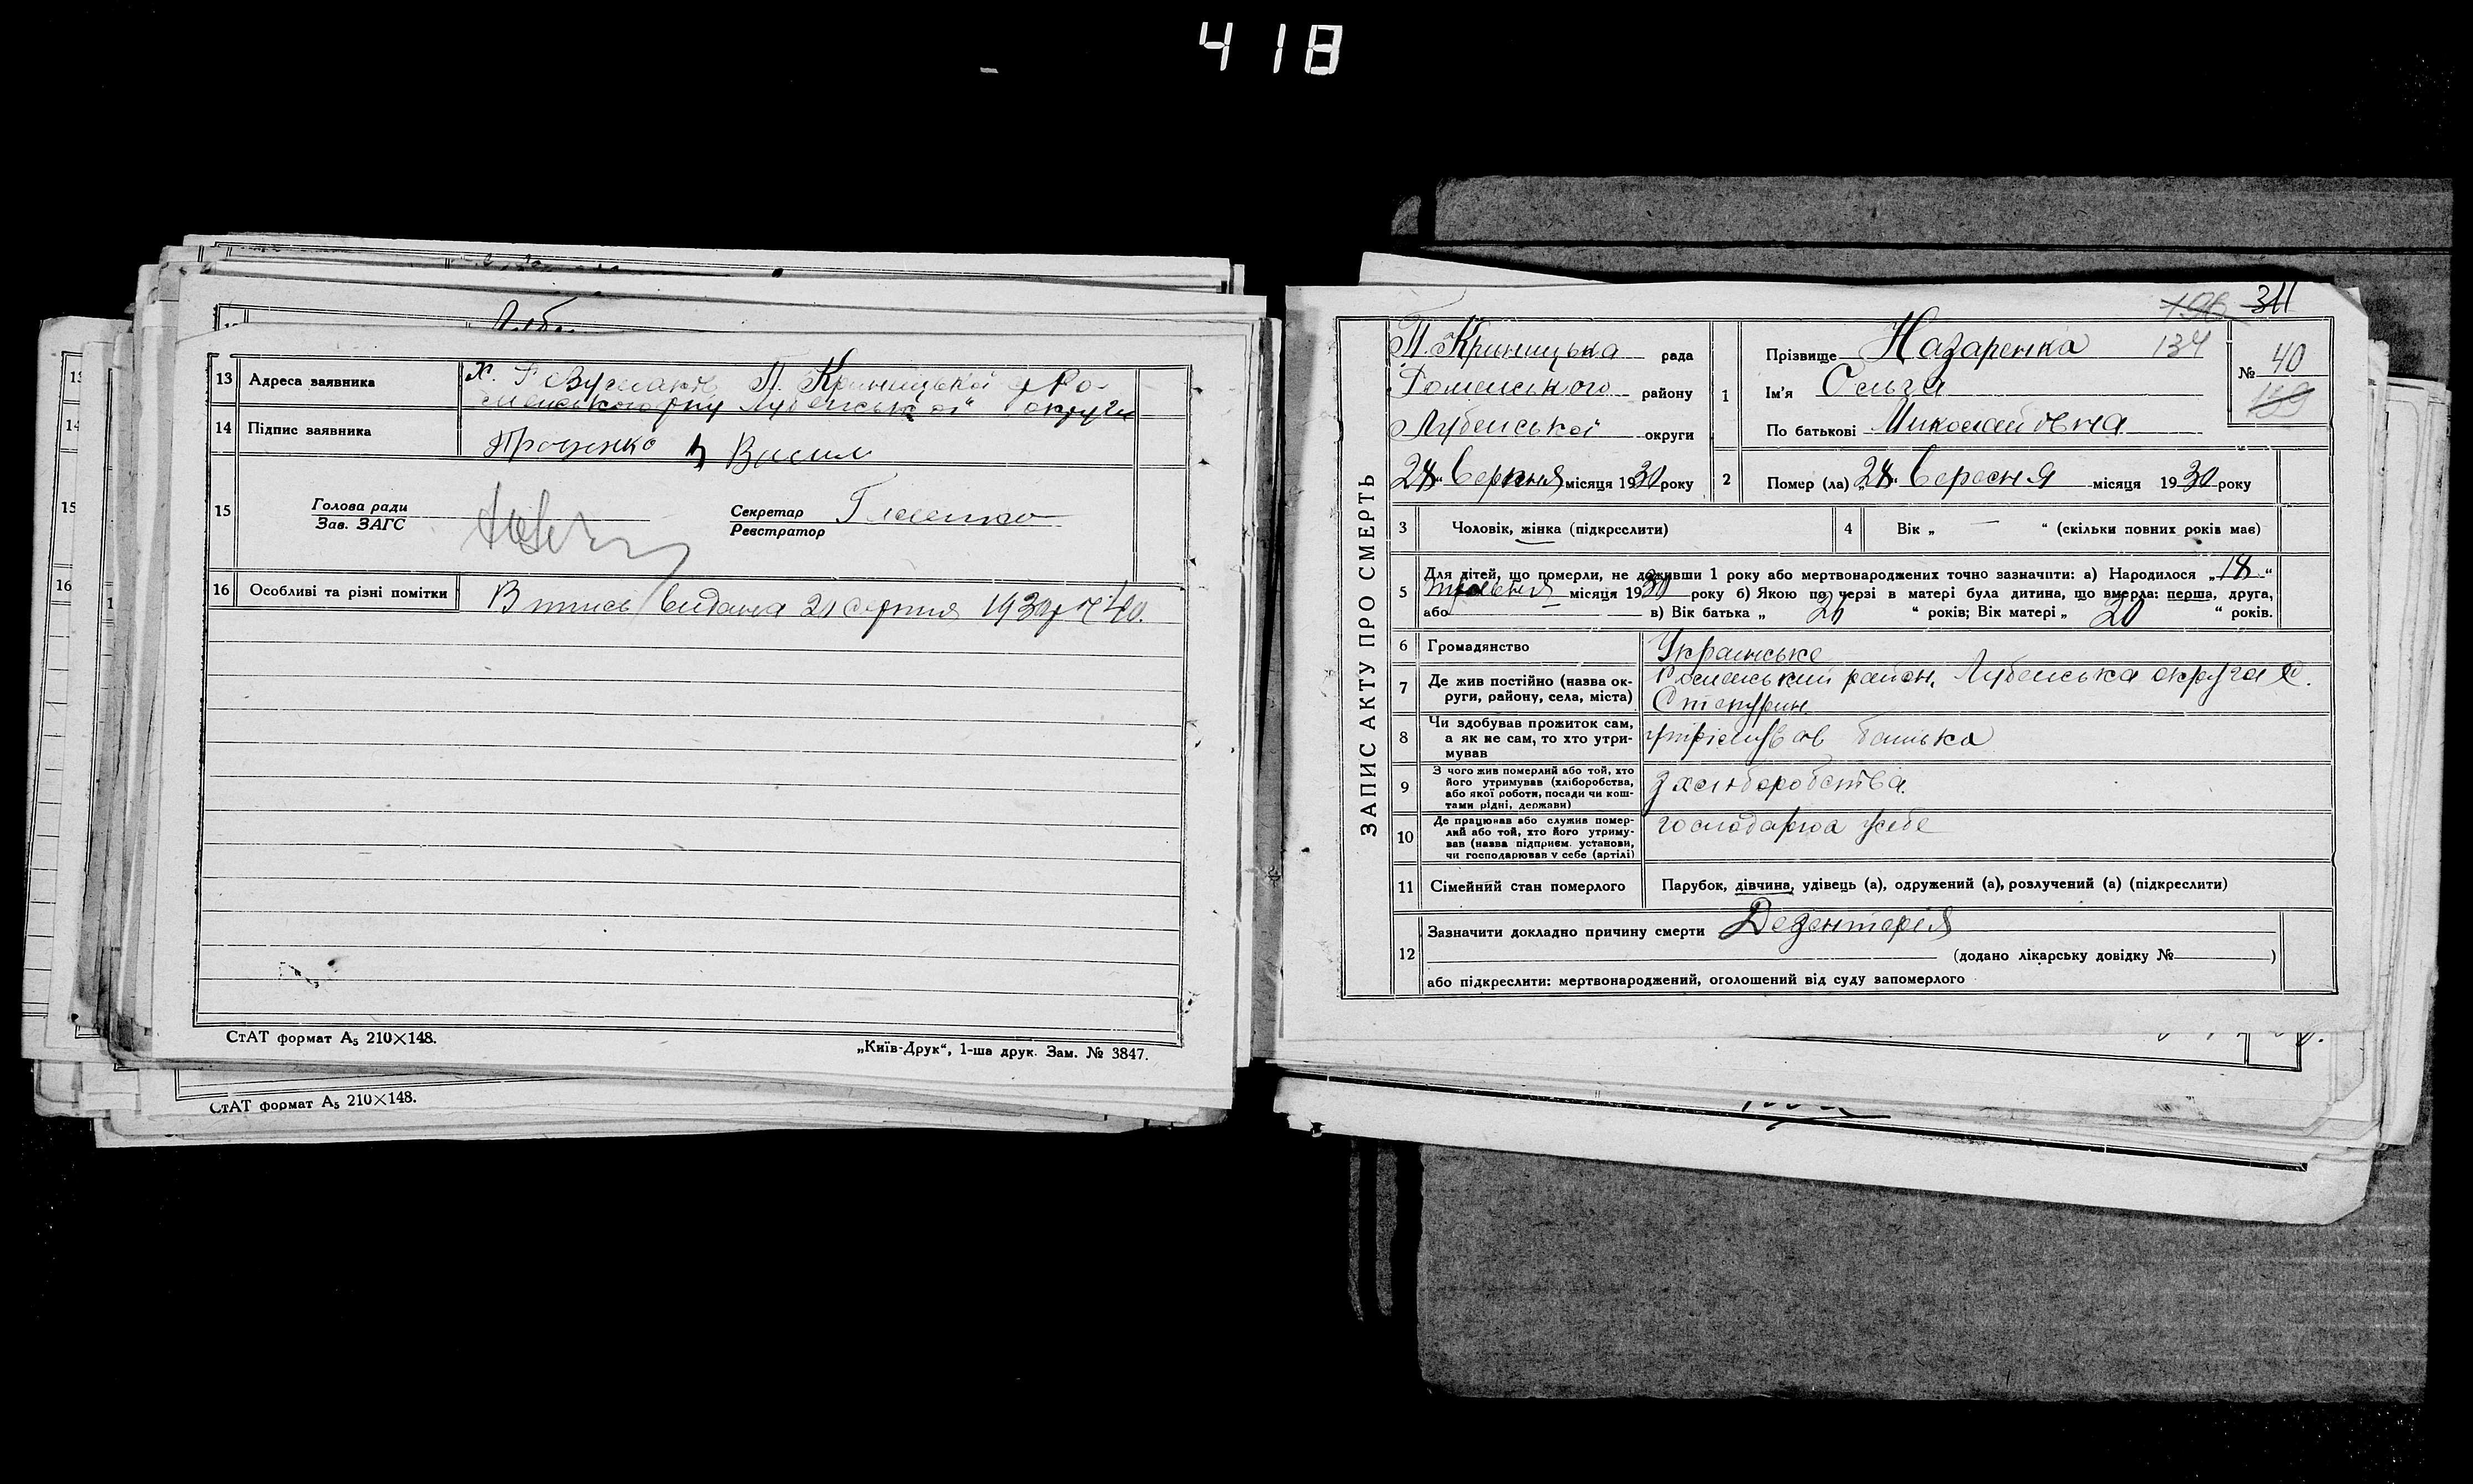 418
13 Адреса заявника
Х. П. Криницької с/р Ро-
менського р-ну Лубенської округи
14 Підпис заявника
Проценко Василь
15 Голова ради
Зав. ЗАГС
Секретар
Реєстратор
16 Особливі та різні помітки
Випись видана 21 серпня 1930 р № 40.
СтАТ формат А5 210×148.
„Київ-Друк“, 1-ша друк. Зам. № 3847.
СтАТ формат А5 210×148.
13
14
15
16
311
134
ЗАПИС АКТУ ПРО СМЕРТЬ
П. Криницька рада
Роменського району
Лубенської округи
28 Серпня місяця 1930 року
1 Прізвище Назаренко
Ім'я Ольга
По батькові Миколаївна
№ 40
2 Помер (ла) „28“ Вересня місяця 1930 року
3 Чоловік, жінка (підкреслити)
4 Вік „ — “ (скільки повних років має)
5 Для дітей, що померли, не доживши 1 року або мертвонароджених точно зазначити: а) Народилося „18“
травня місяця 1930 року б) Якою по черзі в матері була дитина, що вмерла: перша, друга,
або в) Вік батька „ “ років; Вік матері „ 20 “ років.
6 Громадянство Українське
7 Де жив постійно (назва ок-
руги, району, села, міста)
Роменський район, Лубенська округа
8 Чи здобував прожиток сам,
а як не сам, то хто утри-
мував
утримував батько
9 З чого жив померлий або той, хто
його утримував (хліборобства,
або якої роботи, посади чи кош-
тами рідні, держави)
з хліборобства.
10 Де працював або служив помер-
лий або той, хто його утриму-
вав (назва підприєм. установи,
чи господарював у себе (артілі)
господарюа усебе
11 Сімейний стан померлого
Парубок, дівчина, удівець (а), одружений (а), розлучений (а) (підкреслити)
12 Зазначити докладно причину смерти Дезентерія
(додано лікарську довідку № )
або підкреслити: мертвонароджений, оголошений від суду запомерлого